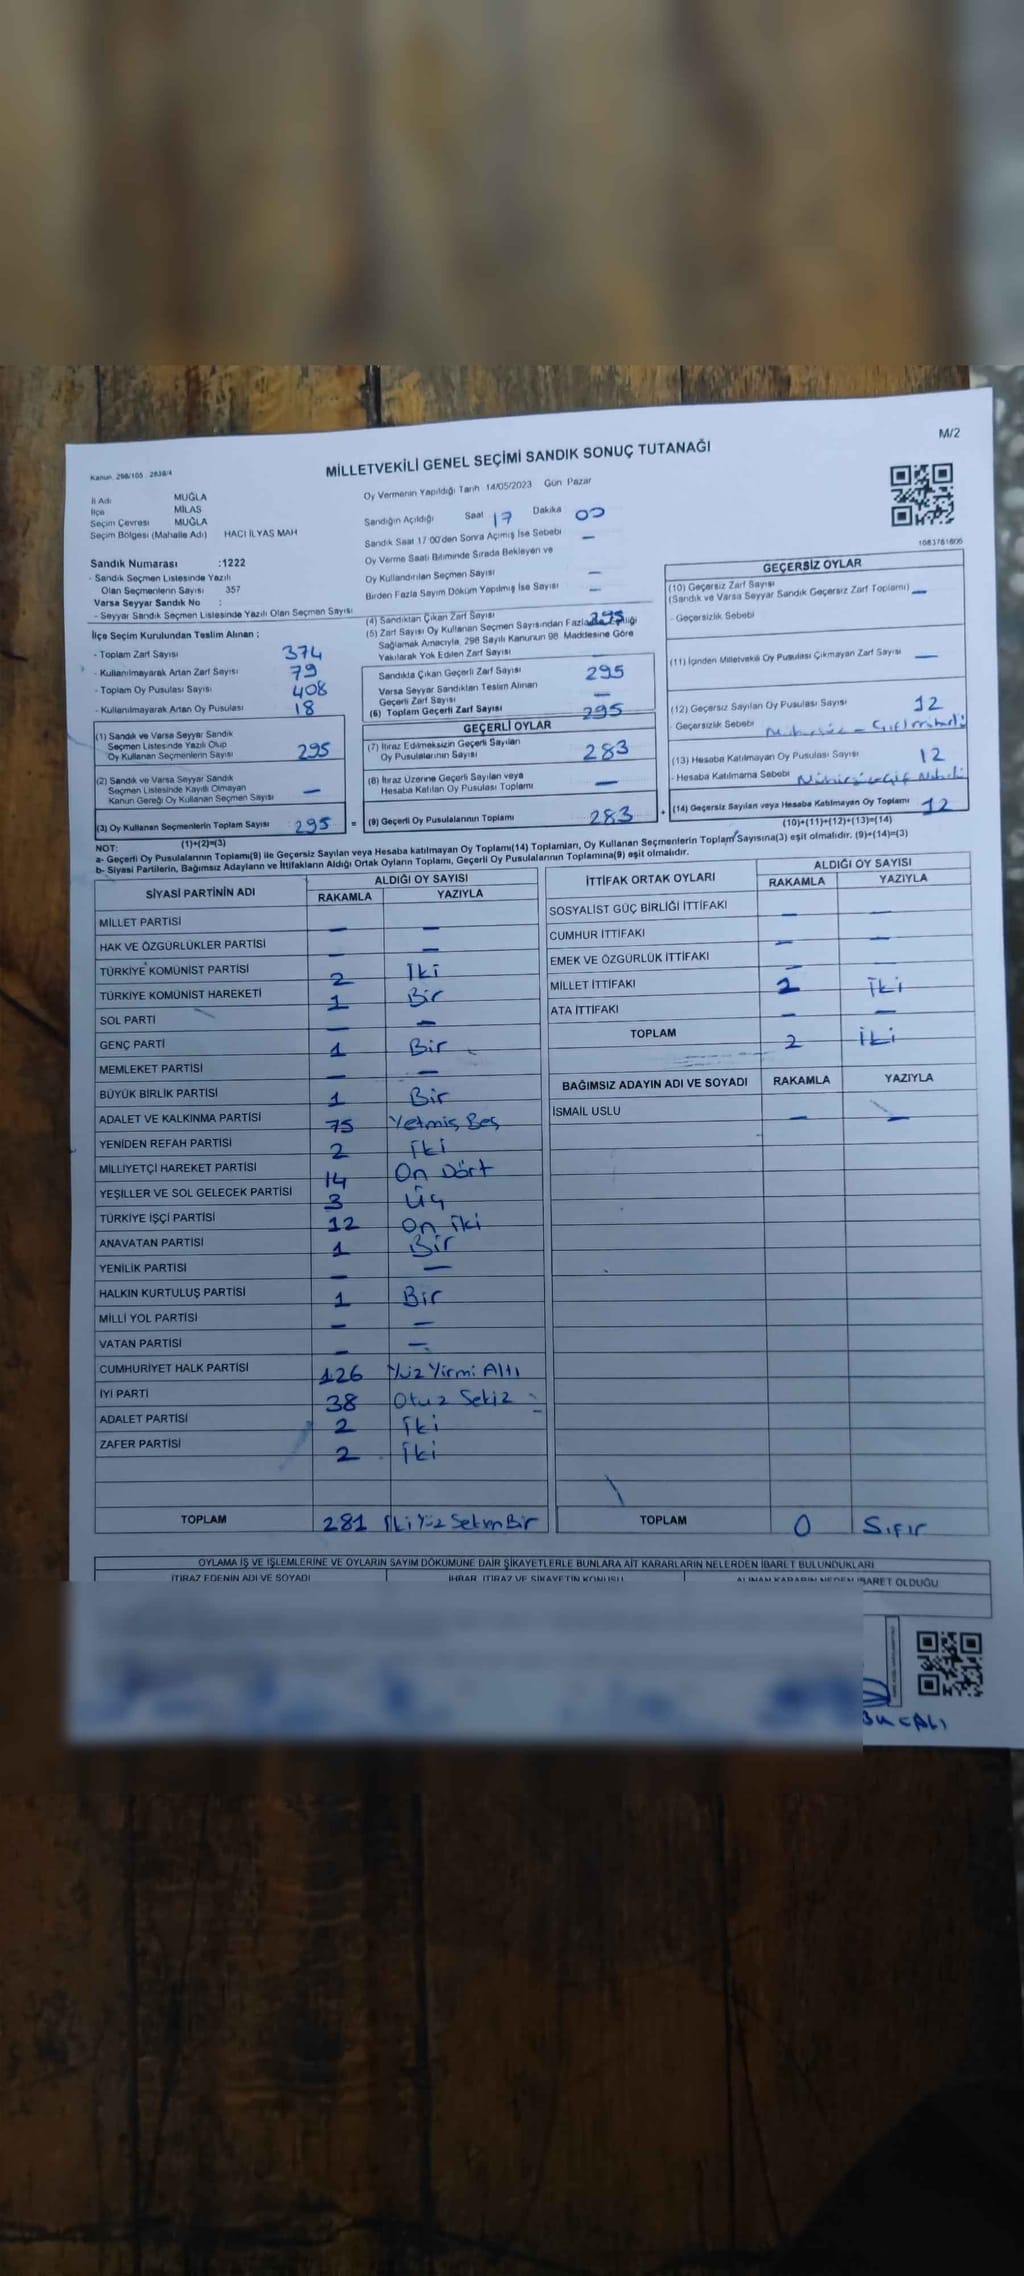 M/2
Kanun 298/105 2839/4
MİLLETVEKİLİ GENEL SEÇİMİ SANDIK SONUÇ TUTANAĞI
İl Adı MUĞLA
İlçe MİLAS
Seçim Çevresi MUĞLA
Seçim Bölgesi (Mahalle Adı) HACI İLYAS MAH
Sandık Numarası :1222
- Sandık Seçmen Listesinde Yazılı
Olan Seçmenlerin Sayısı 357
Varsa Seyyar Sandık No :
- Seyyar Sandık Seçmen Listesinde Yazılı Olan Seçmen Sayısı
İlçe Seçim Kurulundan Teslim Alınan :
- Toplam Zarf Sayısı 374
- Kullanılmayarak Artan Zarf Sayısı 79
- Toplam Oy Pusulası Sayısı 408
- Kullanılmayarak Artan Oy Pusulası 18
(1) Sandık ve Varsa Seyyar Sandık
Seçmen Listesinde Yazılı Olup
Oy Kullanan Seçmenlerin Sayısı 295
(2) Sandık ve Varsa Seyyar Sandık
Seçmen Listesinde Kayıtlı Olmayan
Kanun Gereği Oy Kullanan Seçmen Sayısı —
(3) Oy Kullanan Seçmenlerin Toplam Sayısı 295 =
(1)+(2)=(3)
Oy Vermenin Yapıldığı Tarih 14/05/2023 Gün Pazar
Sandığın Açıldığı Saat 17 Dakika 00
Sandık Saat 17:00'den Sonra Açılmış İse Sebebi —
Oy Verme Saati Bitiminde Sırada Bekleyen ve
Oy Kullandırılan Seçmen Sayısı —
Birden Fazla Sayım Döküm Yapılmış İse Sayısı —
(4) Sandıktan Çıkan Zarf Sayısı 295
(5) Zarf Sayısı Oy Kullanan Seçmen Sayısından Fazla
Sağlamak Amacıyla, 298 Sayılı Kanunun 98. Maddesine Göre
Yakılarak Yok Edilen Zarf Sayısı —
Sandıkta Çıkan Geçerli Zarf Sayısı 295
Varsa Seyyar Sandıktan Teslim Alınan
Geçerli Zarf Sayısı —
(6) Toplam Geçerli Zarf Sayısı 295
GEÇERLİ OYLAR
(7) İtiraz Edilmeksizin Geçerli Sayılan
Oy Pusulalarının Sayısı 283
(8) İtiraz Üzerine Geçerli Sayılan veya
Hesaba Katılan Oy Pusulası Toplamı —
(9) Geçerli Oy Pusulalarının Toplamı 283 +
1083781606
GEÇERSİZ OYLAR
(10) Geçersiz Zarf Sayısı
(Sandık ve Varsa Seyyar Sandık Geçersiz Zarf Toplamı) —
- Geçersizlik Sebebi
(11) İçinden Milletvekili Oy Pusulası Çıkmayan Zarf Sayısı —
(12) Geçersiz Sayılan Oy Pusulası Sayısı 12
- Geçersizlik Sebebi
(13) Hesaba Katılmayan Oy Pusulası Sayısı 12
- Hesaba Katılmama Sebebi
(14) Geçersiz Sayılan veya Hesaba Katılmayan Oy Toplamı 12
(10)+(11)+(12)+(13)=(14)
NOT:
a- Geçerli Oy Pusulalarının Toplamı(9) ile Geçersiz Sayılan veya Hesaba katılmayan Oy Toplamı(14) Toplamları, Oy Kullanan Seçmenlerin Toplam Sayısına(3) eşit olmalıdır. (9)+(14)=(3)
b- Siyasi Partilerin, Bağımsız Adayların ve İttifakların Aldığı Ortak Oyların Toplamı, Geçerli Oy Pusulalarının Toplamına(9) eşit olmalıdır.
SİYASİ PARTİNİN ADI ALDIĞI OY SAYISI
RAKAMLA YAZIYLA
MİLLET PARTİSİ — —
HAK VE ÖZGÜRLÜKLER PARTİSİ — —
TÜRKİYE KOMÜNİST PARTİSİ 2 İki
TÜRKİYE KOMÜNİST HAREKETİ 1 Bir
SOL PARTİ — —
GENÇ PARTİ 1 Bir
MEMLEKET PARTİSİ — —
BÜYÜK BİRLİK PARTİSİ 1 Bir
ADALET VE KALKINMA PARTİSİ 75 Yetmiş Beş
YENİDEN REFAH PARTİSİ 2 İki
MİLLİYETÇİ HAREKET PARTİSİ 14 On Dört
YEŞİLLER VE SOL GELECEK PARTİSİ 3 Üç
TÜRKİYE İŞÇİ PARTİSİ 12 On İki
ANAVATAN PARTİSİ 1 Bir
YENİLİK PARTİSİ — —
HALKIN KURTULUŞ PARTİSİ 1 Bir
MİLLİ YOL PARTİSİ — —
VATAN PARTİSİ — —
CUMHURİYET HALK PARTİSİ 126 Yüz Yirmi Altı
İYİ PARTİ 38 Otuz Sekiz
ADALET PARTİSİ 2 İki
ZAFER PARTİSİ 2 İki
TOPLAM 281 İki Yüz Seksn Bir
İTTİFAK ORTAK OYLARI ALDIĞI OY SAYISI
RAKAMLA YAZIYLA
SOSYALİST GÜÇ BİRLİĞİ İTTİFAKI — —
CUMHUR İTTİFAKI — —
EMEK VE ÖZGÜRLÜK İTTİFAKI — —
MİLLET İTTİFAKI 2 İki
ATA İTTİFAKI — —
TOPLAM 2 İki
BAĞIMSIZ ADAYIN ADI VE SOYADI RAKAMLA YAZIYLA
İSMAİL USLU — —
TOPLAM 0 Sıfır
OYLAMA İŞ VE İŞLEMLERİNE VE OYLARIN SAYIM DÖKÜMÜNE DAİR ŞİKAYETLERLE BUNLARA AİT KARARLARIN NELERDEN İBARET BULUNDUKLARI
İTİRAZ EDENİN ADI VE SOYADI İHBAR, İTİRAZ VE ŞİKAYETİN KONUSU ALINAN KARARIN NEDEN İBARET OLDUĞU